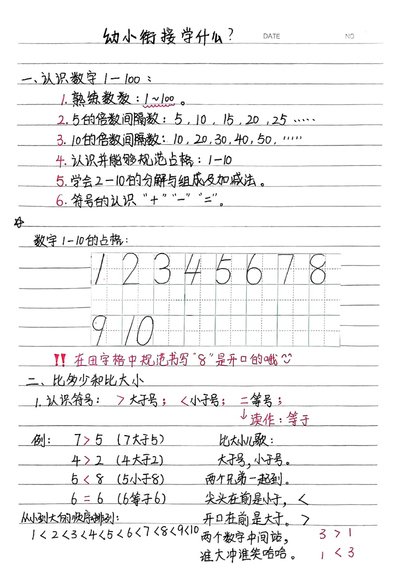 幼小衔接学什么?
DATE NO
一、认识数字1一100:
1. 熟练数数:1~100。
2. 5的倍数间隔数:5, 10, 15, 20, 25 ……
3. 10的倍数间隔数:10, 20, 30, 40, 50, ……
4. 认识并能够规范占格:1-10
5. 学会2-10的分解与组成及加减法。
6. 符号的认识 "+" "-" "="。
数字1-10的占格:
1 2 3 4 5 6 7 8
9 10
!! 在田字格中规范书写"8"是开口的哦
二、比多少和比大小
1. 认识符号: > 大于号; < 小于号; = 等号;
↓读作:等于
例: 7 > 5 (7大于5) 比大小儿歌:
4 > 2 (4大于2) 大于号,小于号。
5 < 8 (5小于8) 两个兄弟一起到。
6 = 6 (6等于6) 尖头在前是小于, <
从小到大的顺序排列: 开口在前是大于。 >
1<2<3<4<5<6<7<8<9<10 两个数字中间站, 3 > 1
谁大冲谁笑哈哈。 1 < 3